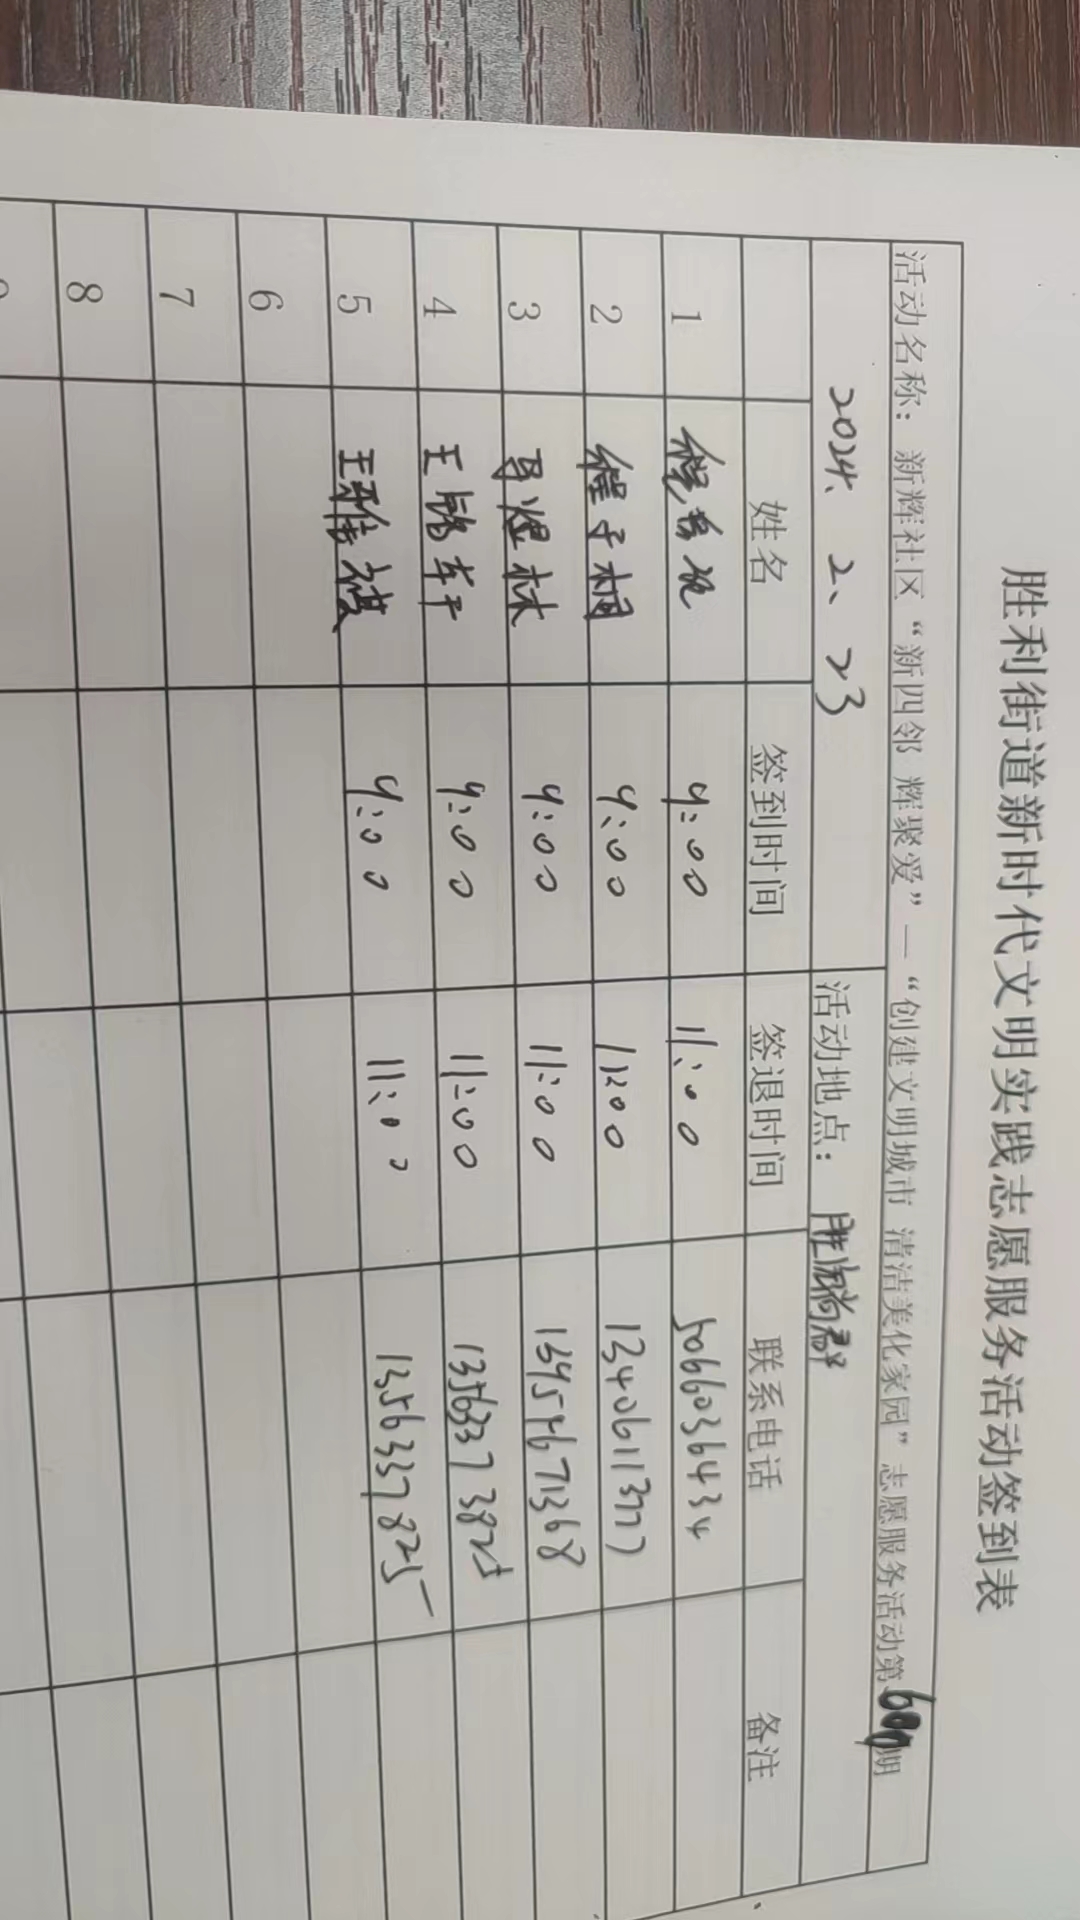 胜利街道新时代文明实践志愿服务活动签到表
活动名称：新辉社区“新四邻 辉聚爱”—“创建文明城市 清洁美化家园”志愿服务活动第期
2024、2、23 活动地点：
姓名 签到时间 签退时间 联系电话 备注
1 9:00 11:00 5066036434
2 程子桐 9:00 11:00 13406113777
3 马煜林 9:00 11:00
4 王 9:00 11:00 13563373825
5 王雅祺 9:00 11:00 1356337825
6
7
8